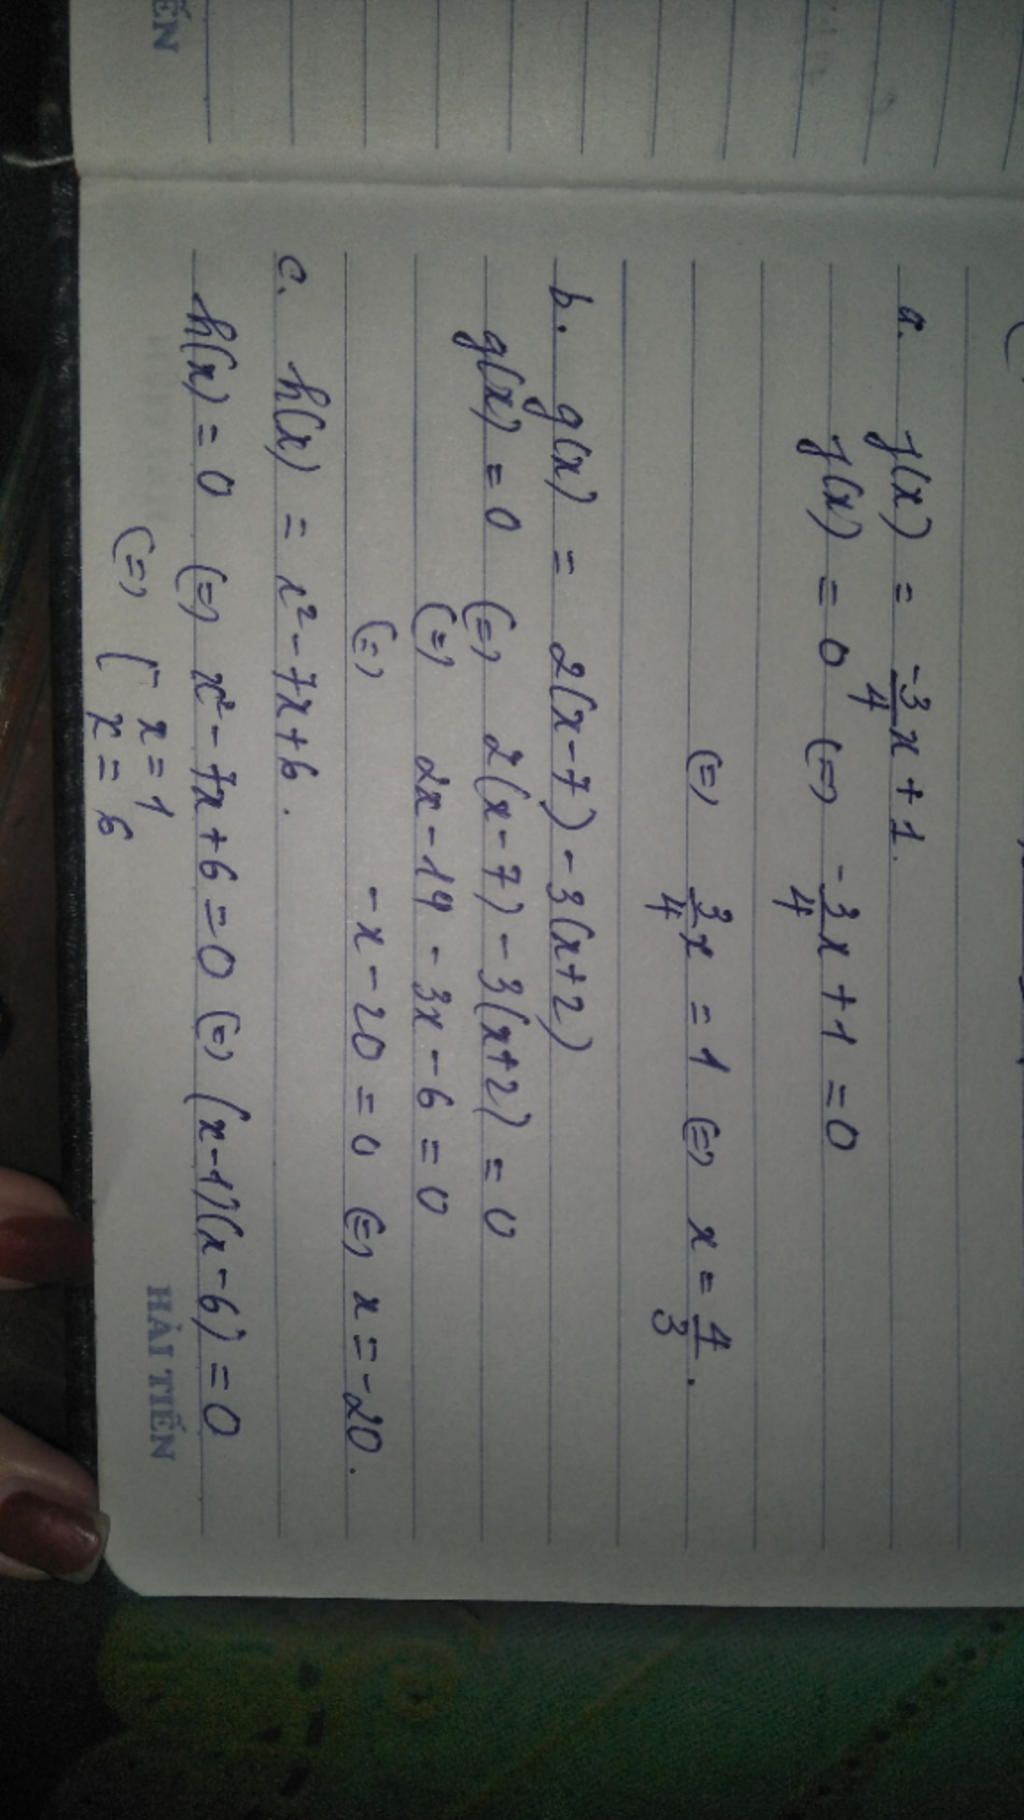 a. f(x) = -3/4 x + 1.
f(x) = 0 (=) -3/4 x + 1 = 0
(=) 3/4 x = 1 (=) x = 4/3 .
b. g(x) = 2(x-7) - 3(x+2)
g(x) = 0 (=) 2(x-7) - 3(x+2) = 0
(=) 2x - 14 - 3x - 6 = 0
(=) -x - 20 = 0 (=) x = -20.
c. h(x) = x² - 7x + 6.
h(x) = 0 (=) x² - 7x + 6 = 0 (=) (x-1)(x-6) = 0
(=) [ x = 1
x = 6
HẢI TIẾN
ẾN